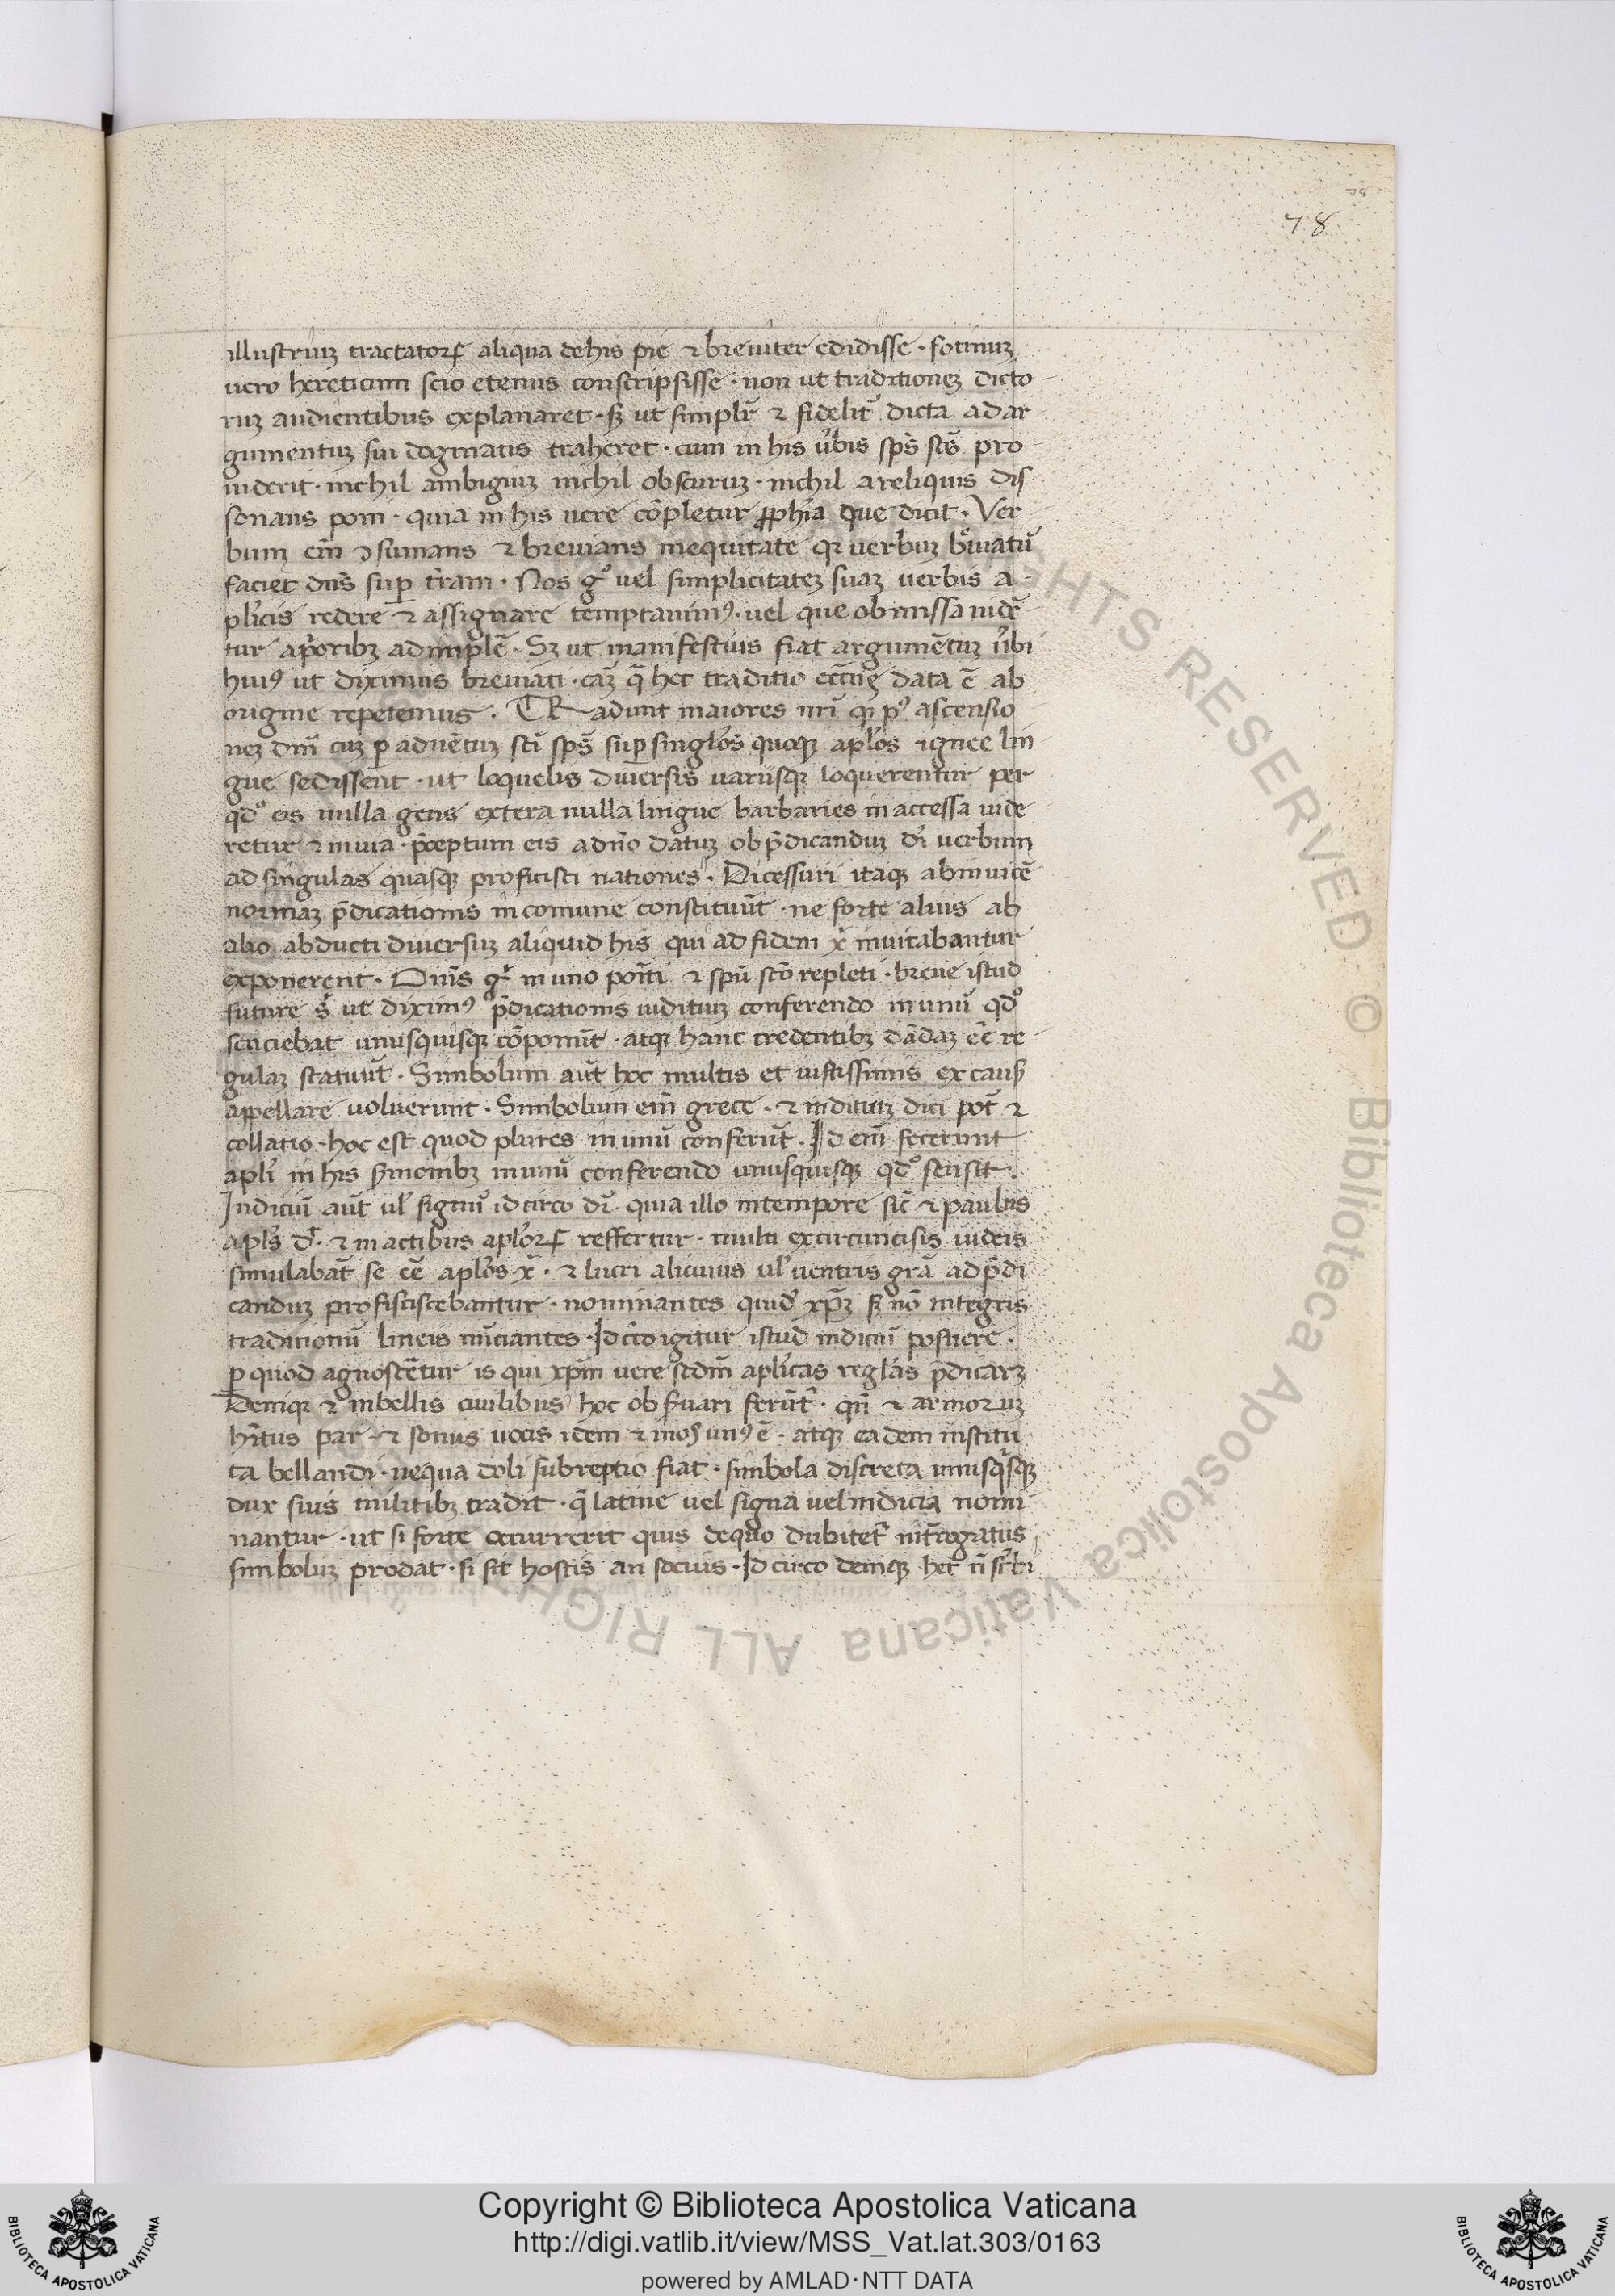 78
78
illustriuꝫ tractatorꝝ aliqua de his pie ⁊ breuiter edidisse · fotinuꝫ
uero hereticum scio etenus conscripsisse · non ut traditioneꝫ dicto-
ruꝫ audientibus explanaret · sꝫ ut simplr̃ ⁊ fidelit̃ dicta ad ar-
gumentuꝫ sui dogmatis traheret · cum in his ũbis sps̃ scs̃ pro-
uiderit · nichil ambiguuꝫ nichil obscuruꝫ · nichil a reliquis dis
sonans poni · quia in his uere cõpletur ꝓphia que dicit · Ver-
bum em̃ ꝯsumans ⁊ breuians in equitate qꝛ uerbuꝫ b̃uiatũ
faciet dns̃ suꝑ t̃ram · Nos gͦ uel simplicitateꝫ suaꝫ uerbis a-
pl̃icis redere ⁊ assignare temptauimꝰ · uel que obmissa uidẽ-
tur a p̃oribꝫ adimplẽ · Sꝫ ut manifestius fiat argumẽtuꝫ ũbi
huiꝰ ut diximus breuiati · cãꝫ q̃ hec traditio ecc̃iis data ẽ ab
origine repetemus · TRadunt maiores nr̃i qꝫ pꝰ ascensio
neꝫ dnĩ cuꝫ ꝑ aduẽtuꝫ sc̃i sps̃ suꝑ singl̃os quoqꝫ apl̃os ignee lin
gue sedissent · ut loquelis diuersis uariisqꝫ loquerentur per
qdͦ eis nulla gens extera nulla lingue barbaries in accessa uide
retur ⁊ inuia · p̃ceptum eis a dño datuꝫ ob p̃dicanduꝫ dĩ uerbum
ad singulas quasqꝫ proficisci nationes · Dicessuri itaqꝫ ab inuicẽ
normaꝫ p̃dicationis in comune constituũt · ne forte alius ab
alio abducti diuersuꝫ aliquid his qui ad fidem xͥ inuitabantur
exponerent · Oms̃ gͥ in uno poĩti ⁊ spũ scõ repleti · breue istud
future s̃ ut diximꝰ p̃dicationis inditiuꝫ conferendo in unũ qdͦ
senciebat unusquisqꝫ cõponũt · atqꝫ hanc credentibꝫ dãdaꝫ eẽ re-
gulaꝫ statuũt · Simbolum aũt hoc multis et iustissimis ex causꝭ
apellare uoluerunt · Simbolum em̃ grece · ⁊ inditiuꝫ dici pot̃ ⁊
collatio · hoc est quod plures in unũ conferũt · Id em̃ fecerunt
apl̃i in his s̃monibꝫ in unũ conferendo unusquisqꝫ qdͦ sensit ·
Indiciũ aũt ul̃ signũ id circo dr̃ · quia illo in tempore sic̃ ⁊ paulus
apl̃s dͥ · ⁊ in actibus apl̃orꝝ reffertur · multi ex circuncisis iudeis
simulabãt se eẽ apl̃os xͥ · ⁊ lucri alicuius ul̃ uentris grã ad p̃di
canduꝫ profisciscebantur · nominantes quid̃ xp̃ꝫ sꝫ nõ integris
traditionũ lineis nũciantes · Idc̃co igitur istud indiciũ posuere ·
ꝑ quod agnoscẽtur is qui xp̃m uere scdm̃ apl̃icas regl̃as p̃dicarꝫ
Deniqꝫ ⁊ in bellis ciuilibus hoc obs̃uari ferũt̃ · qñ ⁊ armoruꝫ
h̃itus par · ⁊ sonus uocis idem ⁊ mos̃ unꝰ ẽ · atqꝫ eadem institu
ta bellandi · ne qua doli subreptio fiat · simbola discreta unusq̃sqꝫ
dux suis militibꝫ tradit · q̃ latine uel signa uel indicia nomi
nantur · ut si forte occurrerit quis de quo dubitet̃ int̃rogatus
simboluꝫ prodat · si sit hostis an socius · Id circo deniqꝫ hec ñ sc̃bi
Copyright © Biblioteca Apostolica Vaticana
http://digi.vatlib.it/view/MSS_Vat.lat.303/0163
powered by AMLAD·NTT DATA
BIBLIOTECA APOSTOLICA VATICANA
BIBLIOTECA APOSTOLICA VATICANA
ALL RIGHTS RESERVED © Biblioteca Apostolica Vaticana